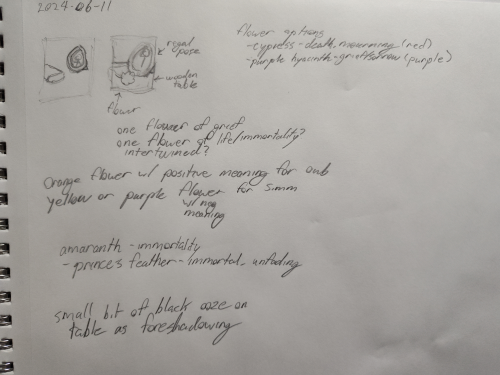 2024-06-11
royal
pose
wooden
table
flower
flower options
-cypress-death, mourning (red)
-purple hyacinth-grief/sorrow (purple)
one flower of grief
one flower of life/immortality?
intertwined?
Orange flower w/ positive meaning for
yellow or purple flower for
w/ neg
meaning
amaranth - immortality
- princes feather - immortal, unfading
small bit of black ooze on
table as foreshadowing